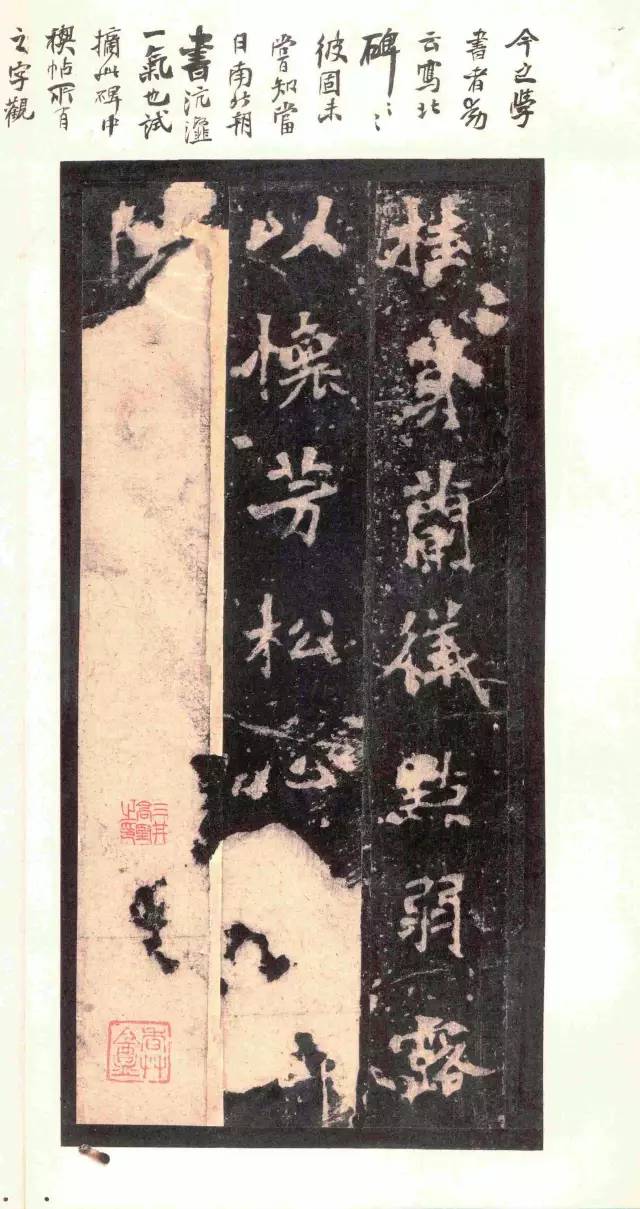 今之學
書者
云寫北
碑〻〻
彼固未
嘗知當
日南北朝
書沆瀣
一氣也試
摘此碑中
稧帖所有
之字觀
桂蘭儀點弱露
以懷芳松心
三井高堅之印